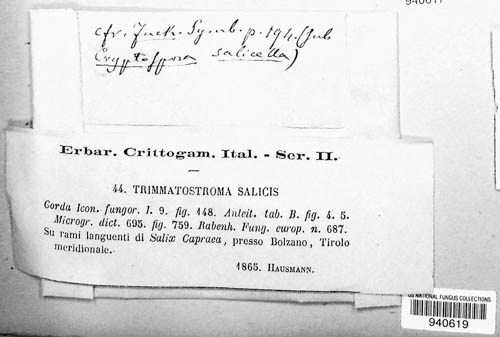 940617
cfr. Fuck. Symb. p. 194. (sub
Cryptospora salicella)
Erbar. Crittogam. Ital. - Ser. II.
44. TRIMMATOSTROMA SALICIS
Corda Icon. fungor. I. 9. fig. 148. Anleit. tab. B. fig. 4. 5.
Microgr. dict. 695. fig. 759. Rabenh. Fung. europ. n. 687.
Su rami languenti di Salix Capraea, presso Bolzano, Tirolo
meridionale.
1865. HAUSMANN.
US NATIONAL FUNGUS COLLECTIONS
940619